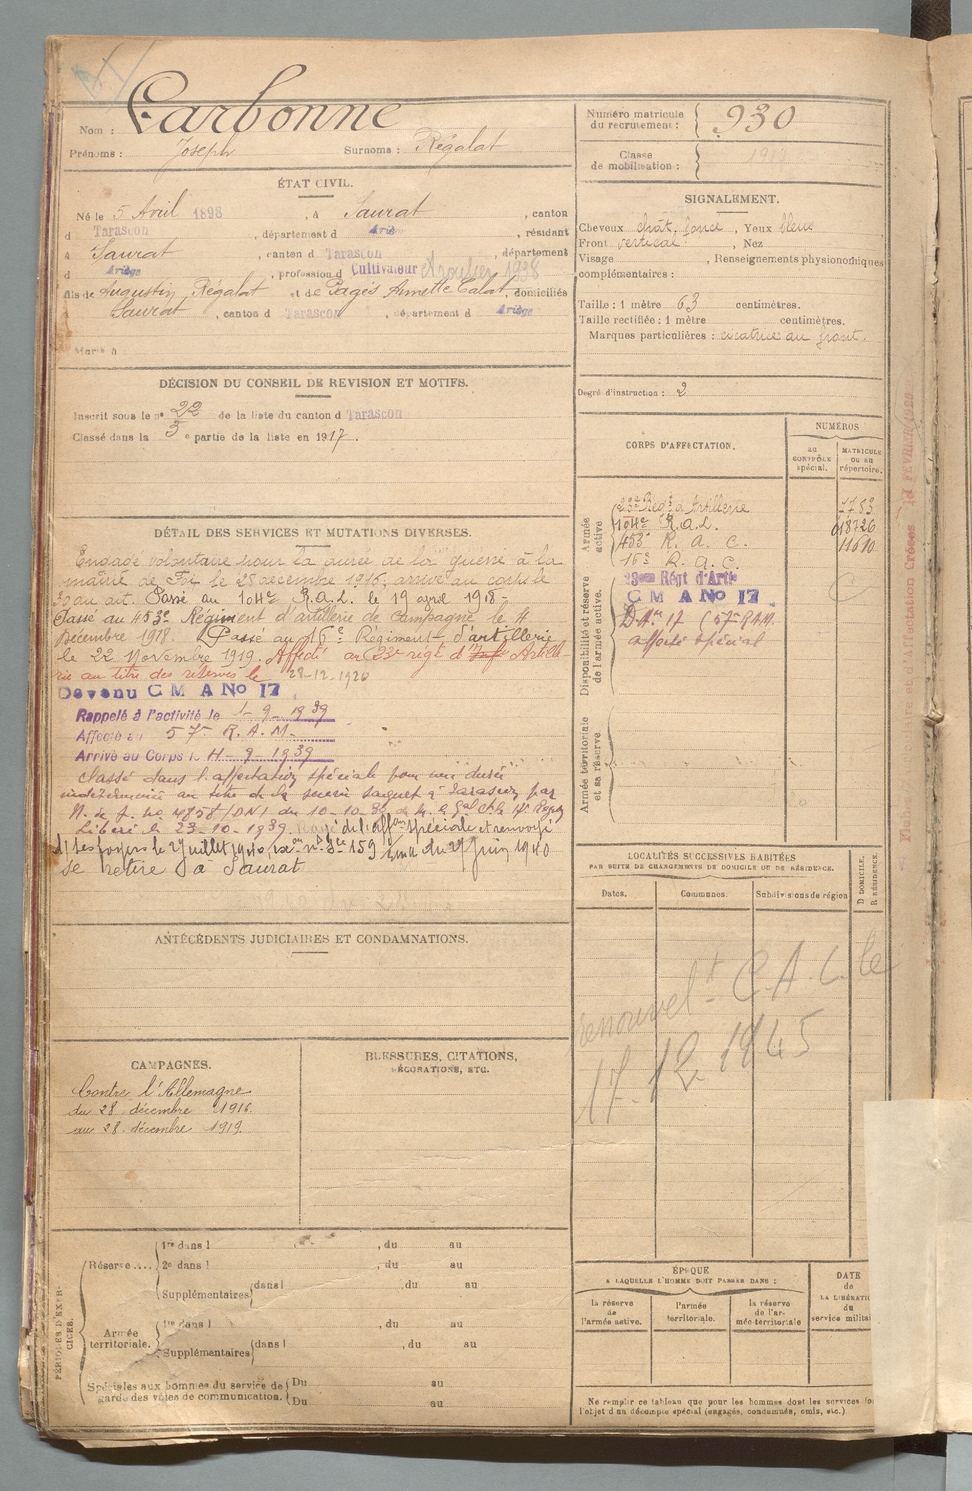 Nom : Carbonne
Prénoms : Joseph Surnoms : Régalat
Numéro matricule du recrutement : 930
Classe de mobilisation :
ÉTAT CIVIL.
Né le 5 Avril 1898, à Saurat, canton
d Tarascon, département d Ariège, résidant
à Saurat, canton d Tarascon, département
d Ariège, profession d Cultivateur 1938
fils de Augustin Régalat et de Pagès Annette Calat, domiciliés
à Saurat, canton d Tarascon, département d Ariège
Marié à
SIGNALEMENT.
Cheveux chât. foncé, Yeux bleus
Front vertical, Nez
Visage , Renseignements physionomiques
complémentaires :
Taille : 1 mètre 63 centimètres.
Taille rectifiée : 1 mètre centimètres.
Marques particulières : cicatrice au front.
Degré d'instruction : 2
DÉCISION DU CONSEIL DE REVISION ET MOTIFS.
Inscrit sous le n° 22 de la liste du canton d Tarascon
Classé dans la 3 e partie de la liste en 1917.
DÉTAIL DES SERVICES ET MUTATIONS DIVERSES.
Engagé volontaire pour la durée de la guerre à la
mairie de Foix le 28 décembre 1916, arrivé au corps le
Passé au 104e R.A.L. le 19 avril 1918-
Passé au 453e Régiment d'artillerie de Campagne le 4
décembre 1918. Passé au 16e Régiment d'artillerie
le 22 Novembre 1919. Affecté au 23e régt d' Artille-
rie au titre des réserves le 29-12-1920
Devenu C M A No 17.
Rappelé à l'activité le 1-9-1939
Affecté au 57e R.A.M.
Arrivé au Corps le 4-9-1939
Classé dans l'affectation spéciale pour une durée
indéterminée au titre de la
N. de S. no 4758/DN/ du 10-10-39
Libéré le 23-10-1939. Rayé de l'affon spéciale et renvoyé
ds ses foyers le 2 Juillet 1940, 159 du 29 Juin 1940
Se retire à Saurat
CORPS D'AFFECTATION.
NUMÉROS
au contrôle spécial.
matricule ou au répertoire.
Armée active
23e Régt d'Artillerie 7783
104e R.A.L. 18726
453e R.A.C. 11610
16e R.A.C.
Disponibilité et réserve de l'armée active.
23em Régt d'Artie
C M A No 17.
D.A. n° 17 (57e R.A.M.
affecté spécial
Armée territoriale et sa réserve.
LOCALITÉS SUCCESSIVES HABITÉES
PAR SUITE DE CHANGEMENTS DE DOMICILE OU DE RÉSIDENCE.
Dates. Communes. Subdivisions de région
D DOMICILE. R RÉSIDENCE.
Renouvelt C.A.C. le
17-12-1945
ANTÉCÉDENTS JUDICIAIRES ET CONDAMNATIONS.
CAMPAGNES.
Contre l'Allemagne
du 28 décembre 1916.
au 28 décembre 1919.
BLESSURES, CITATIONS,
DÉCORATIONS, ETC.
PÉRIODES D'EXERCICES.
Réserve....
1re dans l , du au
2e dans l , du au
Supplémentaires dans l , du au
Armée territoriale.
1re dans l , du au
Supplémentaires dans l , du au
Spéciales aux hommes du service de garde des voies de communication.
Du au
Du au
ÉPOQUE
A LAQUELLE L'HOMME DOIT PASSER DANS :
la réserve de l'armée active.
l'armée territoriale.
la réserve de l'armée territoriale
DATE de LA LIBÉRATI du service milita
Ne remplir ce tableau que pour les hommes dont les services fo
l'objet d'un décompte spécial (engagés, condamnés, omis, etc.)